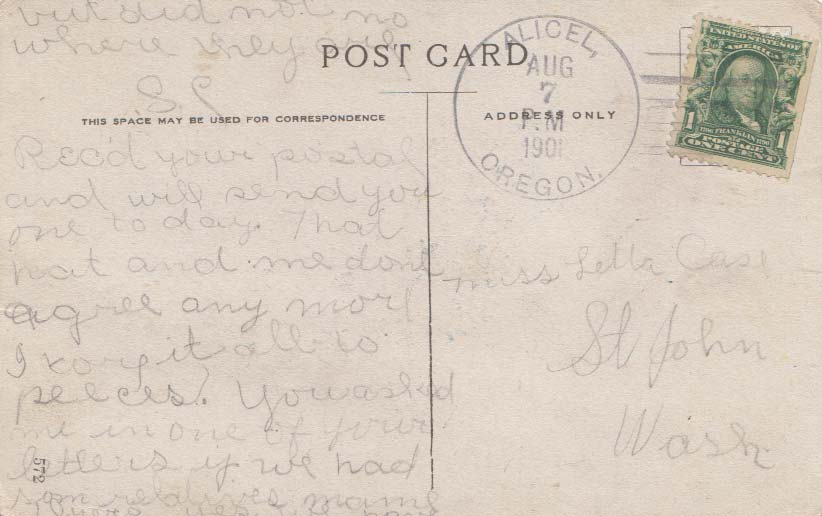 but did not no
where they are
POST CARD
S. C
THIS SPACE MAY BE USED FOR CORRESPONDENCE
ADDRESS ONLY
ALICEL,
AUG
7
P.M
190
OREGON.
UNITED STATES OF
AMERICA
1706 FRANKLIN 1790
POSTAGE
1 ONE CENT 1
Rec'd your postal
and will send you
one to day. That
hat and me don't
agree any more
I it all to
peeces. You asked
me in one of your
letters if we had
som relatives
miss Letta Case
St John
Wash
572